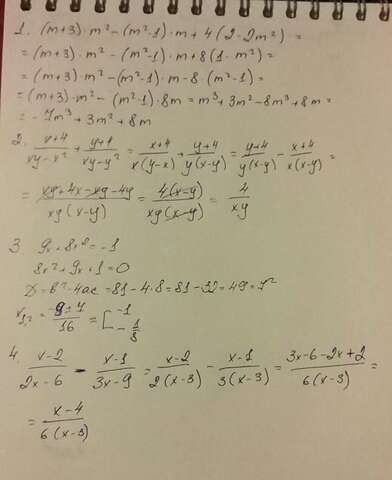 1. (m+3)·m²-(m²-1)·m+4(2-2m²)=
=(m+3)·m²-(m²-1)·m+8(1-m²)=
=(m+3)·m²-(m²-1)·m-8(m²-1)=
=(m+3)·m²-(m²-1)·8m=m³+3m²-8m³+8m=
=-7m³+3m²+8m
2. (x+4)/(xy-x²)+(y+4)/(xy-y²)=(x+4)/(x(y-x))+(y+4)/(y(x-y))=(y+4)/(y(x-y))-(x+4)/(x(x-y))=
=(xy+4x-xy-4y)/(xy(x-y))=4(x-y)/(xy(x-y))=4/(xy)
3. 9x+8x²=-1
8x²+9x+1=0
D=b²-4ac=81-4·8=81-32=49=7²
x₁,₂=(-9±7)/16=[-1
-1/8
4. (x-2)/(2x-6)-(x-1)/(3x-9)=(x-2)/(2(x-3))-(x-1)/(3(x-3))=(3x-6-2x+2)/(6(x-3))=
=(x-4)/(6(x-3))